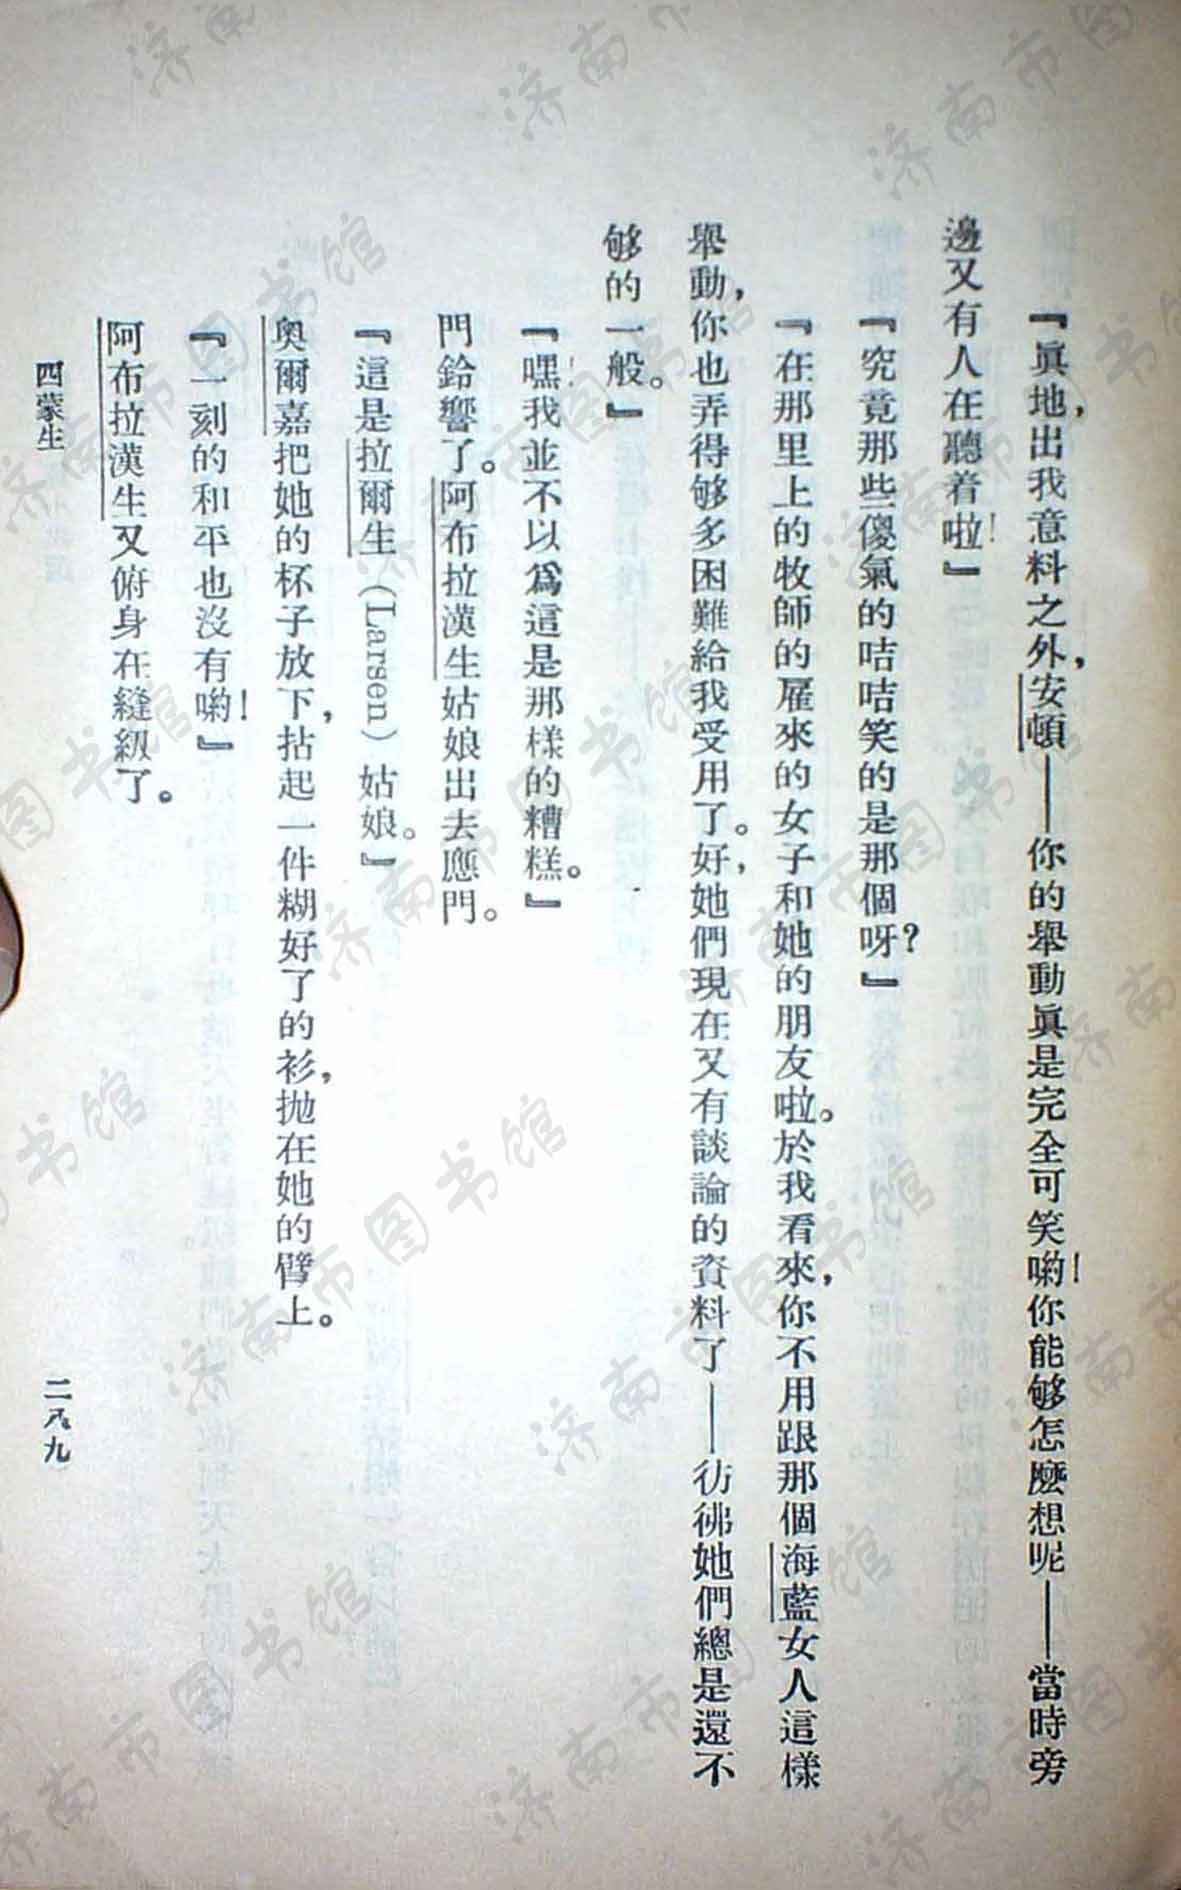 『眞地，出我意料之外，安頓——你的舉動眞是完全可笑喲！你能够怎麼想呢——當時旁
邊又有人在聽着啦！』
『究竟那些傻氣的咭咭笑的是那個呀？』
『在那里上的牧師的雇來的女子和她的朋友啦。於我看來，你不用跟那個海藍女人這樣
舉動，你也弄得够多困難給我受用了。好，她們現在又有談論的資料了——彷彿她們總是還不
够的一般。』
『嘿！我並不以爲這是那樣的糟糕。』
門鈴響了。阿布拉漢生姑娘出去應門。
『這是拉爾生（Larsen）姑娘。』
奥爾嘉把她的杯子放下，拈起一件糊好了的衫，拋在她的臂上。
『一刻的和平也沒有喲！』
阿布拉漢生又俯身在縫級了。
四蒙生
二八九
济南市图书馆